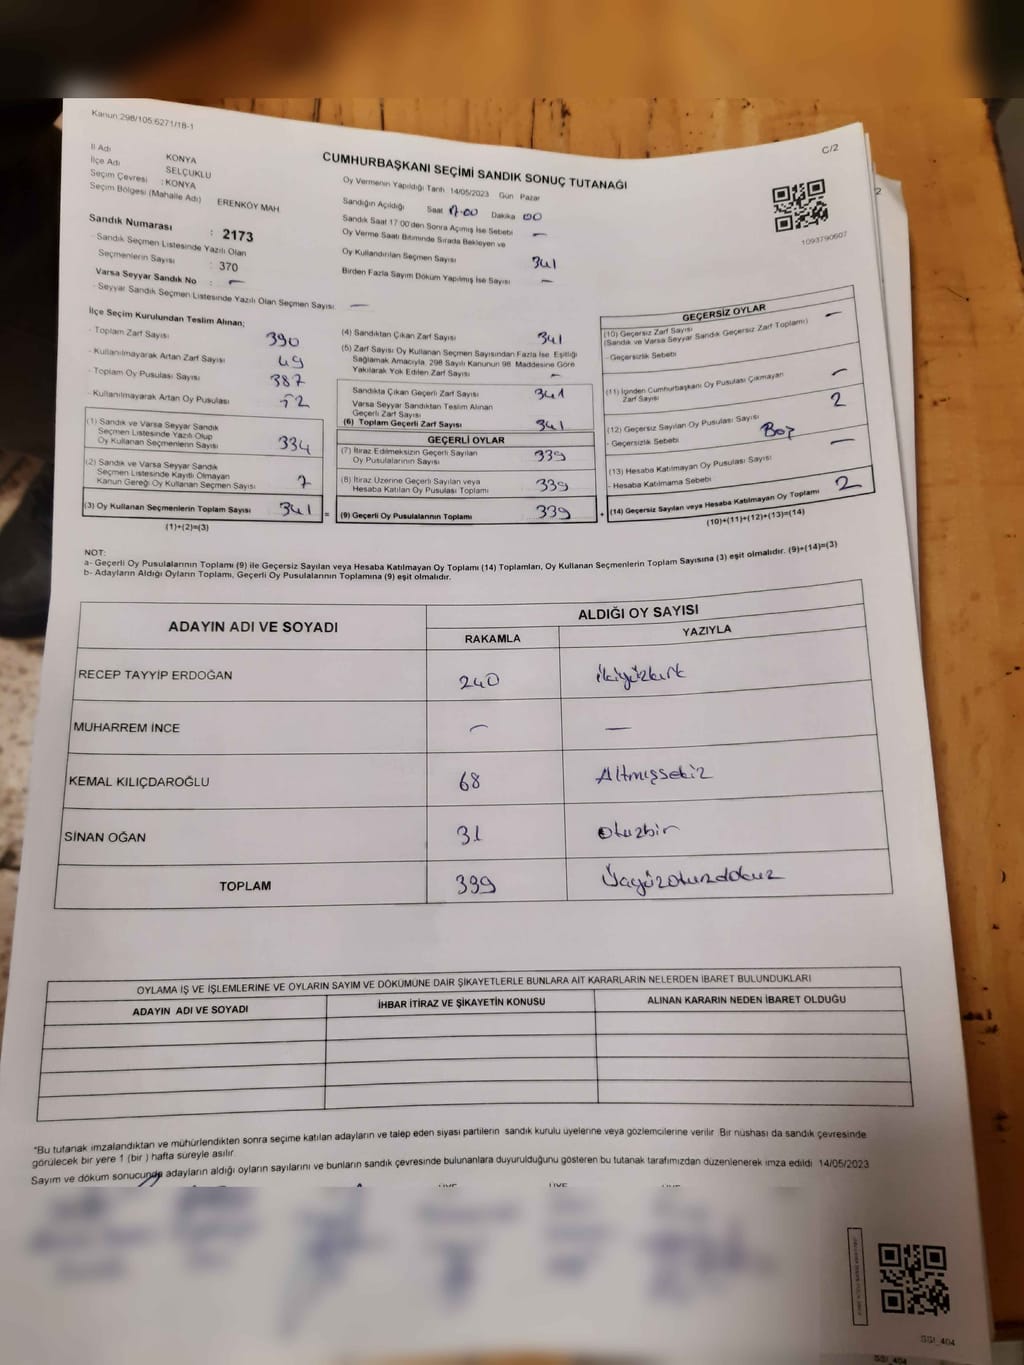 Kanun:298/105;6271/18-1
C/2
CUMHURBAŞKANI SEÇİMİ SANDIK SONUÇ TUTANAĞI
İl Adı KONYA
İlçe Adı SELÇUKLU
Seçim Çevresi : KONYA
Seçim Bölgesi (Mahalle Adı) ERENKÖY MAH
Sandık Numarası : 2173
- Sandık Seçmen Listesinde Yazılı Olan
Seçmenlerin Sayısı : 370
Varsa Seyyar Sandık No : —
- Seyyar Sandık Seçmen Listesinde Yazılı Olan Seçmen Sayısı : —
Oy Vermenin Yapıldığı Tarih 14/05/2023 Gün Pazar
Sandığın Açıldığı Saat 17.00 Dakika 00
Sandık Saat 17:00'den Sonra Açımış İse Sebebi —
Oy Verme Saati Bitiminde Sırada Bekleyen ve
Oy Kullandırılan Seçmen Sayısı 341
Birden Fazla Sayım Döküm Yapılmış İse Sayısı —
1093790607
İlçe Seçim Kurulundan Teslim Alınan;
- Toplam Zarf Sayısı 390
- Kullanılmayarak Artan Zarf Sayısı 49
- Toplam Oy Pusulası Sayısı 387
- Kullanılmayarak Artan Oy Pusulası
(1) Sandık ve Varsa Seyyar Sandık
Seçmen Listesinde Yazılı Olup
Oy Kullanan Seçmenlerin Sayısı 334
(2) Sandık ve Varsa Seyyar Sandık
Seçmen Listesinde Kayıtlı Olmayan
Kanun Gereği Oy Kullanan Seçmen Sayısı 7
(3) Oy Kullanan Seçmenlerin Toplam Sayısı 341
(1)+(2)=(3)
(4) Sandıktan Çıkan Zarf Sayısı 341
(5) Zarf Sayısı Oy Kullanan Seçmen Sayısından Fazla İse, Eşitliği
Sağlamak Amacıyla, 298 Sayılı Kanunun 98. Maddesine Göre
Yakılarak Yok Edilen Zarf Sayısı —
Sandıkta Çıkan Geçerli Zarf Sayısı 341
Varsa Seyyar Sandıktan Teslim Alınan
Geçerli Zarf Sayısı
(6) Toplam Geçerli Zarf Sayısı 341
GEÇERLİ OYLAR
(7) İtiraz Edilmeksizin Geçerli Sayılan
Oy Pusulalarının Sayısı 339
(8) İtiraz Üzerine Geçerli Sayılan veya
Hesaba Katılan Oy Pusulası Toplamı 339
= (9) Geçerli Oy Pusulalarının Toplamı 339
GEÇERSİZ OYLAR
(10) Geçersiz Zarf Sayısı —
(Sandık ve Varsa Seyyar Sandık Geçersiz Zarf Toplamı)
- Geçersizlik Sebebi
(11) İçinden Cumhurbaşkanı Oy Pusulası Çıkmayan —
Zarf Sayısı
(12) Geçersiz Sayılan Oy Pusulası Sayısı 2
- Geçersizlik Sebebi Boş
(13) Hesaba Katılmayan Oy Pusulası Sayısı —
- Hesaba Katılmama Sebebi
+ (14) Geçersiz Sayılan veya Hesaba Katılmayan Oy Toplamı 2
(10)+(11)+(12)+(13)=(14)
NOT:
a- Geçerli Oy Pusulalarının Toplamı (9) ile Geçersiz Sayılan veya Hesaba Katılmayan Oy Toplamı (14) Toplamları, Oy Kullanan Seçmenlerin Toplam Sayısına (3) eşit olmalıdır. (9)+(14)=(3)
b- Adayların Aldığı Oyların Toplamı, Geçerli Oy Pusulalarının Toplamına (9) eşit olmalıdır.
ADAYIN ADI VE SOYADI ALDIĞI OY SAYISI
RAKAMLA YAZIYLA
RECEP TAYYİP ERDOĞAN 240 ikiyüzkırk
MUHARREM İNCE — —
KEMAL KILIÇDAROĞLU 68 Altmışsekiz
SİNAN OĞAN 31 otuzbir
TOPLAM 339 Üçyüzotuzdokuz
OYLAMA İŞ VE İŞLEMLERİNE VE OYLARIN SAYIM VE DÖKÜMÜNE DAİR ŞİKAYETLERLE BUNLARA AİT KARARLARIN NELERDEN İBARET BULUNDUKLARI
ADAYIN ADI VE SOYADI İHBAR İTİRAZ VE ŞİKAYETİN KONUSU ALINAN KARARIN NEDEN İBARET OLDUĞU
*Bu tutanak imzalandıktan ve mühürlendikten sonra seçime katılan adayların ve talep eden siyasi partilerin sandık kurulu üyelerine veya gözlemcilerine verilir. Bir nüshası da sandık çevresinde
görülecek bir yere 1 (bir ) hafta süreyle asılır.
Sayım ve döküm sonucunda adayların aldığı oyların sayılarını ve bunların sandık çevresinde bulunanlara duyurulduğunu gösteren bu tutanak tarafımızdan düzenlenerek imza edildi 14/05/2023
SSI_404
SSI_404